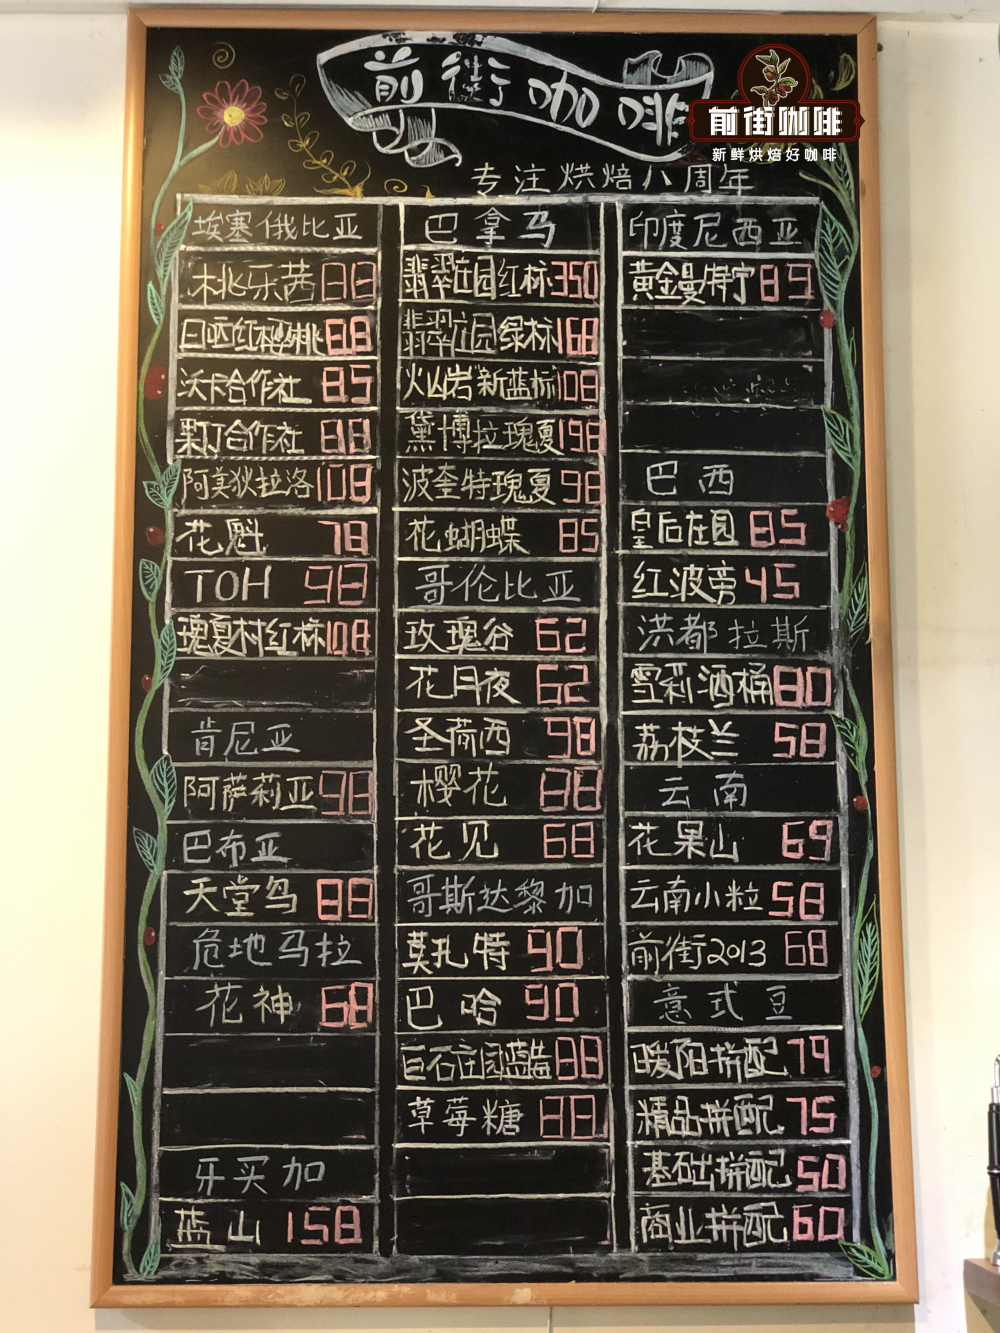 前街咖啡
前街咖啡
新鲜烘焙好咖啡
专注烘焙八周年
埃塞俄比亚
桃乐茜 88
日晒红樱桃 88
沃卡合作社 85
果丁合作社 88
阿美狄拉洛 108
花魁 78
TOH 98
瑰夏村红标 108
肯尼亚
阿萨莉亚 98
巴布亚
天堂鸟 88
危地马拉
花神 68
牙买加
蓝山 158
巴拿马
翡翠庄园红标 350
翡翠庄园绿标 168
火山岩新蓝标 108
黛博拉瑰夏 198
波奎特瑰夏 98
花蝴蝶 85
哥伦比亚
玫瑰谷 62
花月夜 62
圣荷西 98
樱花 88
花见 68
哥斯达黎加
莫扎特 90
巴哈 90
白石庄园蓝莓 88
草莓糖 88
印度尼西亚
黄金曼特宁 89
巴西
皇后庄园 85
红波旁 45
洪都拉斯
雪莉酒桶 80
荔枝兰 58
云南
花果山 69
云南小粒 58
前街2013 68
意式豆
暖阳拼配 79
精品拼配 75
基础拼配 50
商业拼配 60